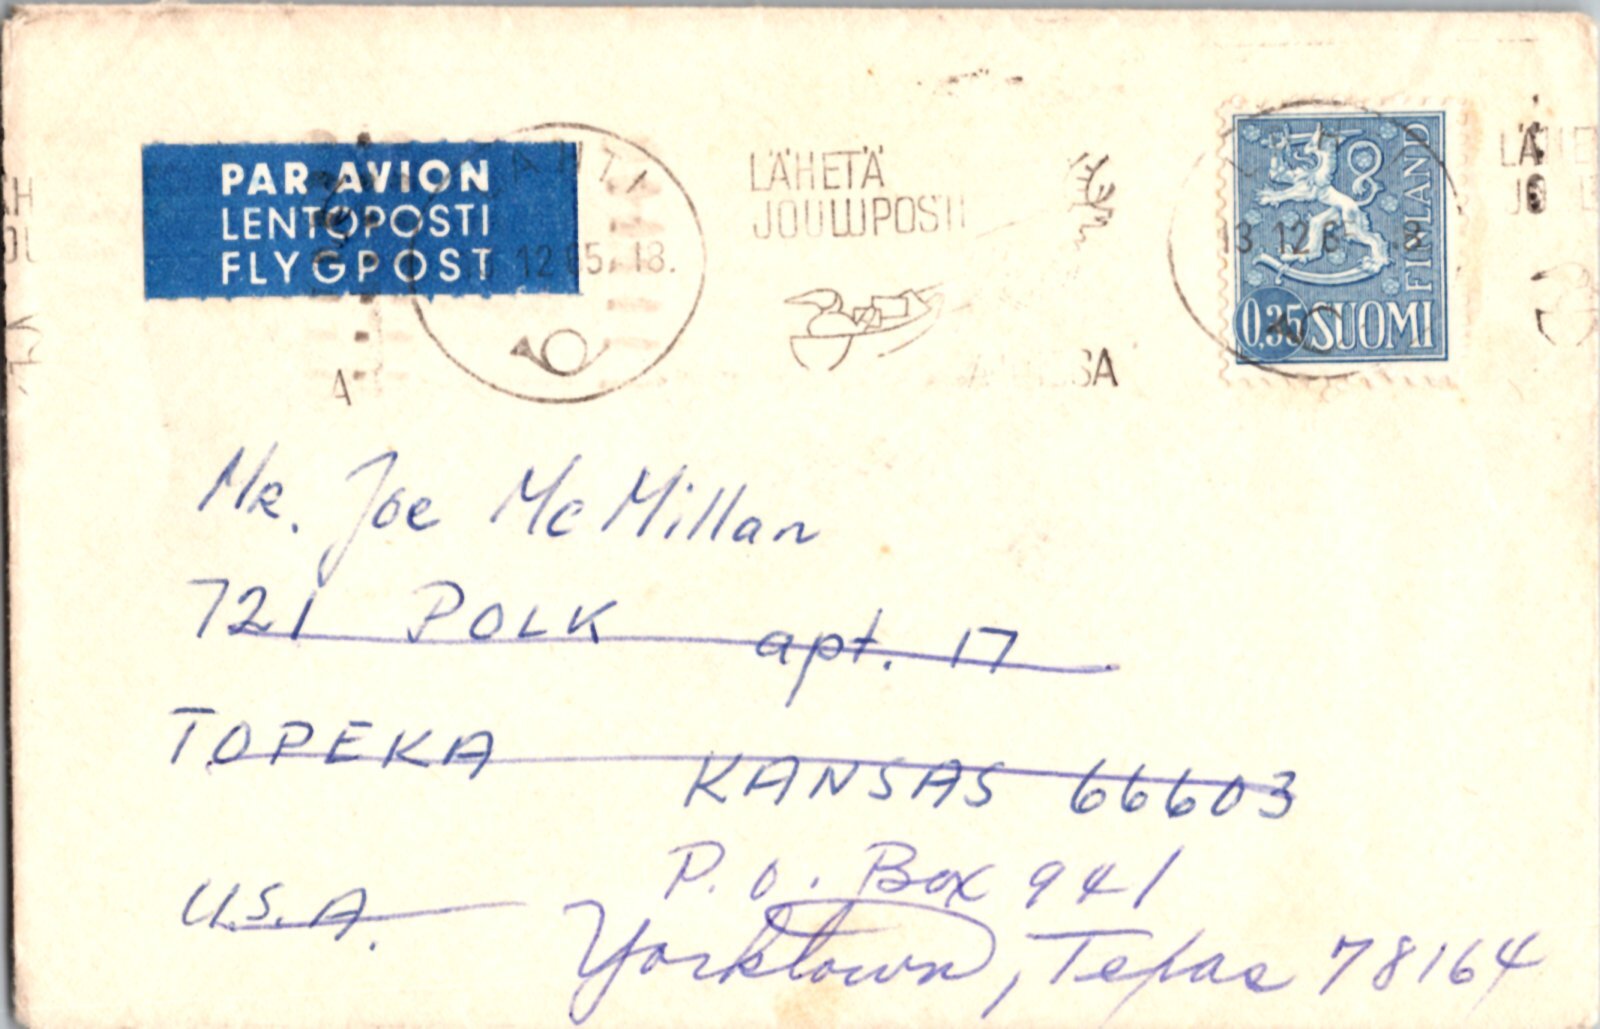 PAR AVION
LENTOPOSTI
FLYGPOST
LAHTI
12 65. 18.
LÄHETÄ
JOULUPOSTI
A
SA
13.12.6
FINLAND
0,35 SUOMI
Mr. Joe McMillan
721 POLK apt. 17
TOPEKA KANSAS 66603
U.S.A.
P.O. Box 941
Yorktown, Texas 78164